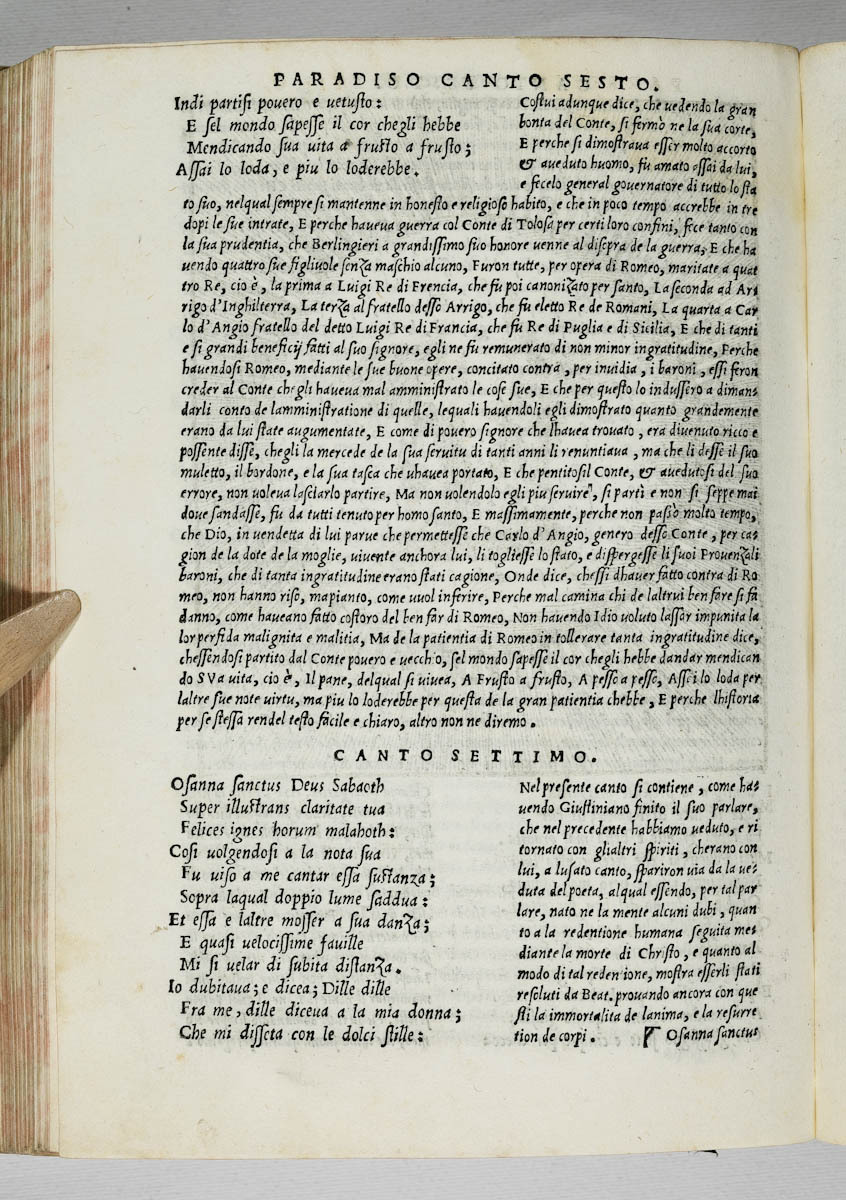 PARADISO CANTO SESTO.
Indi partisi povero e uetusto:
E sel mondo sapesse il cor chegli hebbe
Mendicando sua uita a frusto a frusto;
Assai lo loda, e piu lo loderebbe.
Costui adunque dice, che uedendo la gran
bonta del Conte, si fermò ne la sua corte,
E perche si dimostraua esser molto accorto
& aueduto huomo, fu amato assai da lui,
e fecelo general gouernatore di tutto lo sta
to suo, nelqual sempre si mantenne in honesto e religioso habito, e che in poco tempo accrebbe in tre
dopi le sue intrate, E perche haveua guerra col Conte di Tolosa per certi loro confini, fece tanto con
la sua prudentia, che Berlingieri a grandissimo suo honore uenne al disopra de la guerra, E che ha
uendo quattro sue figliuole senza maschio alcuno, Furon tutte, per opera di Romeo, maritate a quat
tro Re, cio è, la prima a Luigi Re di Frencia, che fu poi canonizato per santo, La seconda ad Ar
rigo d'Inghilterra, La terza al fratello desso Arrigo, che fu eletto Re de Romani, La quarta a Car
lo d'Angio fratello del detto Luigi Re di Francia, che fu Re di Puglia e di Sicilia, E che di tanti
e si grandi beneficij fatti al suo signore, egli ne fu remunerato di non minor ingratitudine, Perche
hauendosi Romeo, mediante le sue buone opere, concitato contra, per inuidia, i baroni, essi feron
creder al Conte chegli haueua mal amministrato le cose sue, E che per questo lo indussero a diman-
darli conto de lamministratione di quelle, lequali hauendoli egli dimostrato quanto grandemente
erano da lui state augumentate, E come di povero signore che lhauea trouato, era diuenuto ricco e
possente disse, chegli la mercede de la sua seruitu di tanti anni li renuntiaua, ma che li desse il suo
muletto, il bordone, e la sua tasca che uhauea portato, E che pentitosil Conte, & auedutosi del suo
errore, non uoleua lasciarlo partire, Ma non uolendolo egli piu seruire, si partì e non si seppe mai
doue sandasse, fu da tutti tenuto per homo santo, E massimamente, perche non passò molto tempo,
che Dio, in uendetta di lui parue che permettesse che Carlo d'Angio, genero desso Conte, per ca-
gion de la dote de la moglie, uiuente anchora lui, li togliesse lo stato, e dispergesse li suoi Prouenzali
baroni, che di tanta ingratitudine erano stati cagione, Onde dice, chessi dhauer fatto contra di Ro
meo, non hanno riso, ma pianto, come uuol inferire, Perche mal camina chi de laltrui ben fare si fa
danno, come haueano fatto costoro del ben far di Romeo, Non hauendo Idio voluto lassar impunita la
lor perfida malignita e malitia, Ma de la patientia di Romeo in tollerare tanta ingratitudine dice,
chessendosi partito dal Conte povero e uecchio, sel mondo sapesse il cor chegli hebbe dandar mendican
do SVa uita, cio è, Il pane, delqual si uiuea, A Frusto a frusto, A pesso a pesso, Assai lo loda per
laltre sue note uirtu, ma piu lo loderebbe per questa de la gran patientia chebbe, E perche lhistoria
per se stessa rendel testo facile e chiaro, altro non ne diremo.
CANTO SETTIMO.
Osanna sanctus Deus Sabaoth
Super illustrans claritate tua
Felices ignes horum malahoth:
Cosi uolgendosi a la nota sua
Fu uiso a me cantar essa sustanza;
Sopra laqual doppio lume saddua:
Et essa e laltre mosser a sua danza;
E quasi uelocissime fauille
Mi si uelar di subita distanza.
Io dubitaua; e dicea; Dille dille
Fra me, dille diceua a la mia donna;
Che mi disseta con le dolci stille:
Nel presente canto si contiene, come ha-
uendo Giustiniano finito il suo parlare,
che nel precedente habbiamo ueduto, e ri
tornato con glialtri spiriti, cherano con
lui, a lusato canto, spariron uia da la ue-
duta del poeta, alqual essendo, per tal par
lare, nato ne la mente alcuni dubi, quan
to a la redentione humana seguita me-
diante la morte di Christo, e quanto al
modo di tal redenione, mostra esserli stati
resoluti da Beat. prouando ancora con que
sti la immortalita de lanima, e la resurre
tion de corpi. Osanna sanctus